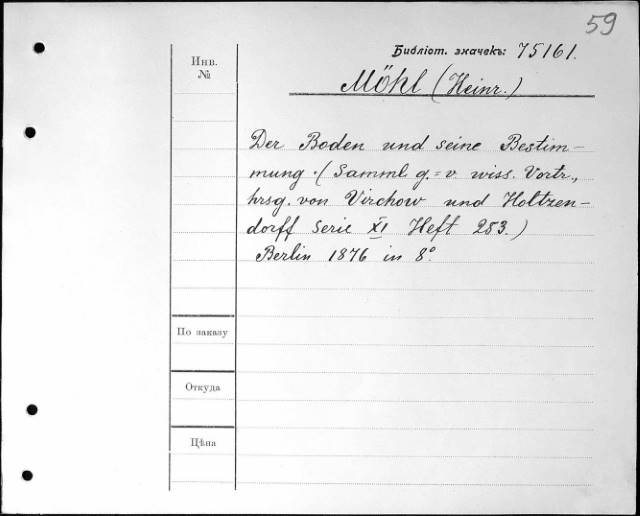 59
Библіот. значекъ: 75161.
Инв.
№
Möhl (Heinr.)
Der Boden und seine Bestim-
mung. (Samml g.=v. wiss. Vortr.,
hrsg. von Virchow und Holtzen-
dorff Serie XI Heft 253.)
Berlin 1876 in 8°.
По заказу
Откуда
Цѣна